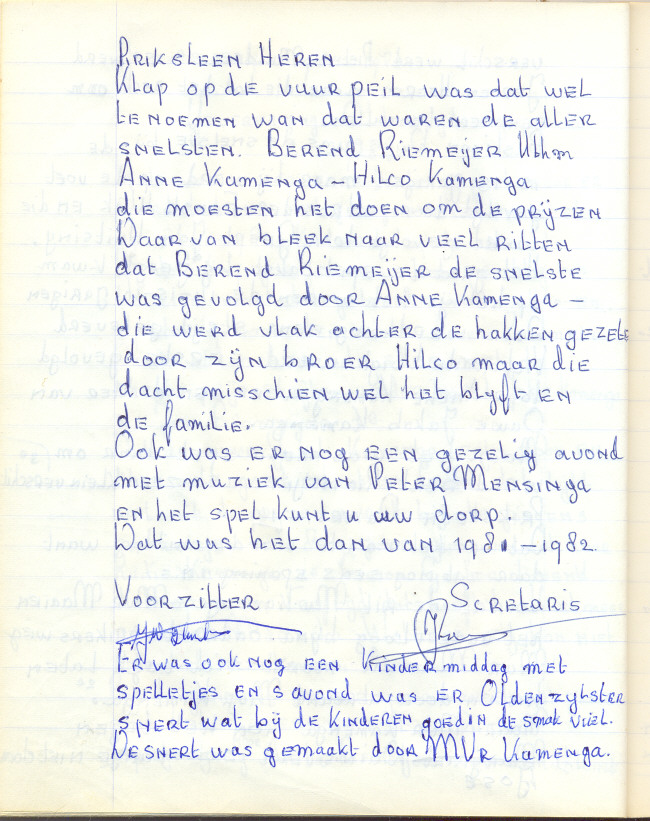 PRIKSLEEN HEREN
Klap op de vuurpeil was dat wel
te noemen wan dat waren de aller
snelsten. Berend Riemeijer Uthm
Anne Kamenga – Hilco Kamenga
die moesten het doen om de prijzen
Waar van bleek naar veel ritten
dat Berend Riemeijer de snelste
was gevolgd door Anne Kamenga –
die werd vlak achter de hakken gezete
door zijn broer Hilco maar die
dacht misschien wel het blyft en
de familie.
Ook was er nog een gezelig avond
met muziek van Peter Mensinga
en het spel kunt u uw dorp.
Dat was het dan van 1981 – 1982.
Voorzitter Scretaris
Er was ook nog een kindermiddag met
spelletjes en s avond was er Oldenzylster
snert wat bij de kinderen goed in de smak viel.
De snert was gemaakt door MVr Kamenga.